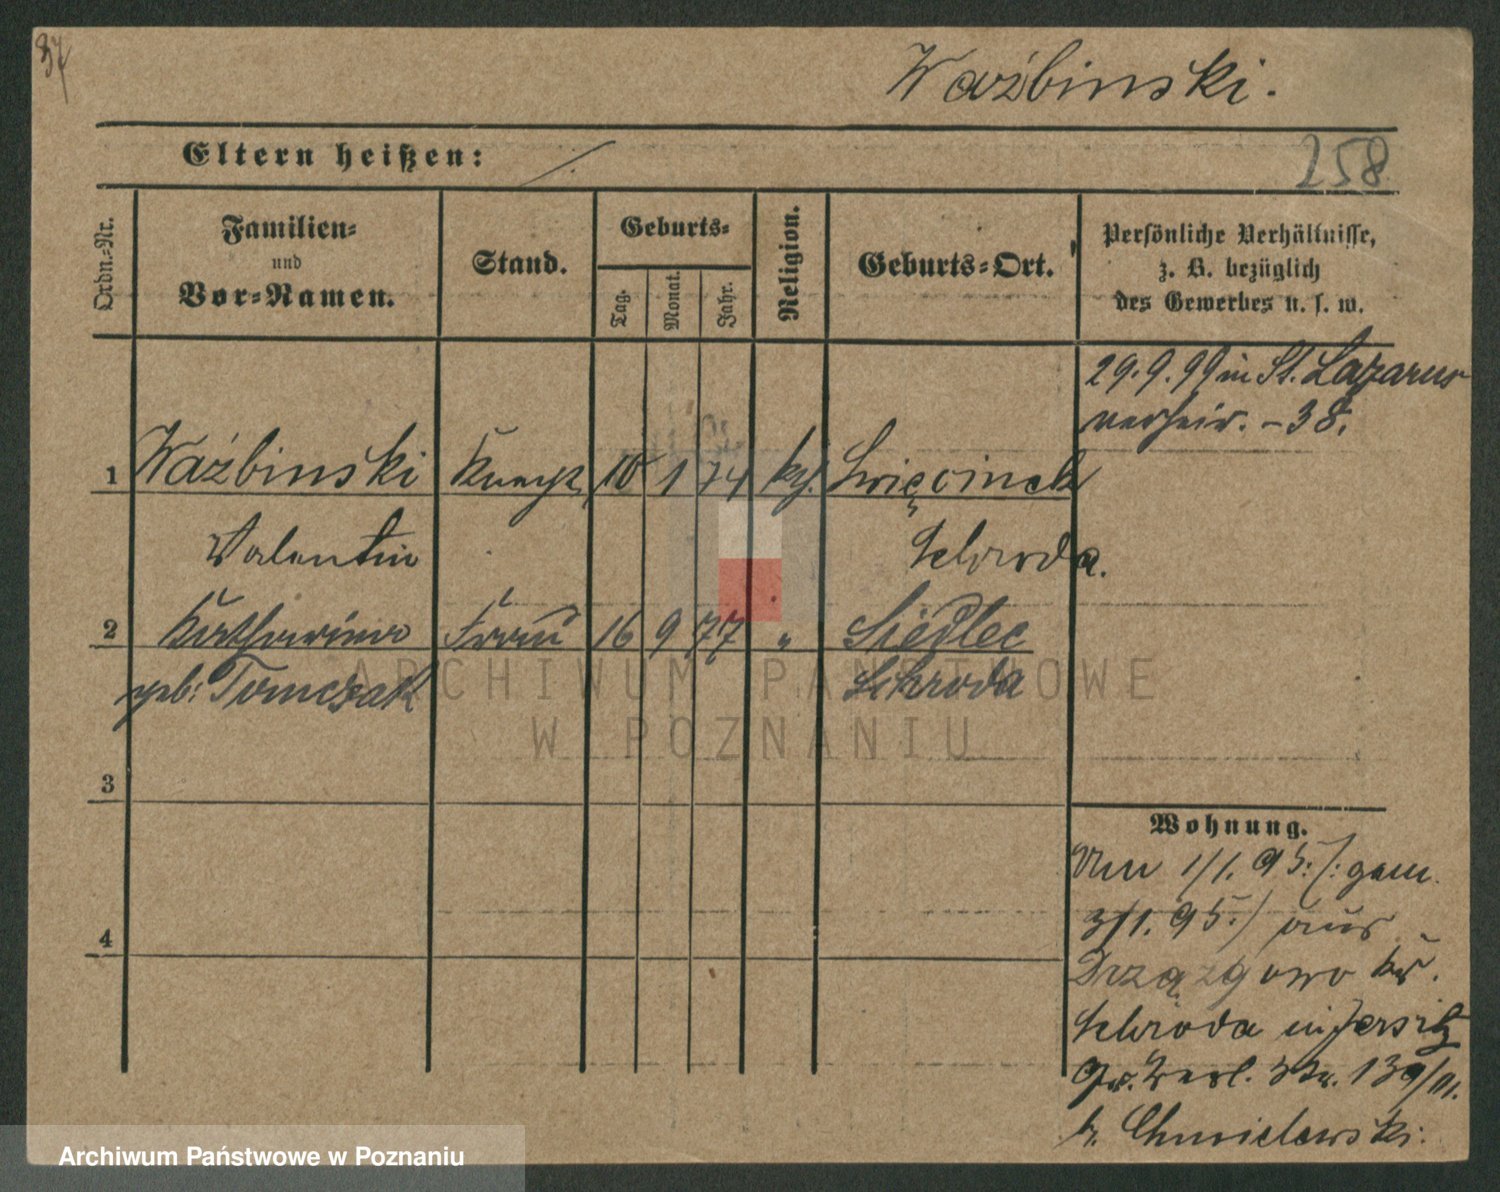 37
Waźbinski.
Eltern heißen: /
258
Ordn.-Nr.
Familien-
und
Vor-Namen.
Stand.
Geburts-
Tag.
Monat.
Jahr.
Religion.
Geburts-Ort.
Persönliche Verhältnisse,
z. B. bezüglich
des Gewerbes u. s. w.
29.9.99 in St. Lazarus
verheir. - 38.
1 Waźbinski 10 1 74 kt. Święcinek
Valentin Schroda.
2 Katharina Frau 16 9 77 " Siedlec
geb: Tomczak Schroda
3
4
Wohnung.
Am 1/1.95. /: gem.
3/1.95. / aus
Drzązgowo Kr.
Schroda in Jersitz
139/III.
b. Chmielewski.
ARCHIWUM PAŃSTWOWE
W POZNANIU
Archiwum Państwowe w Poznaniu